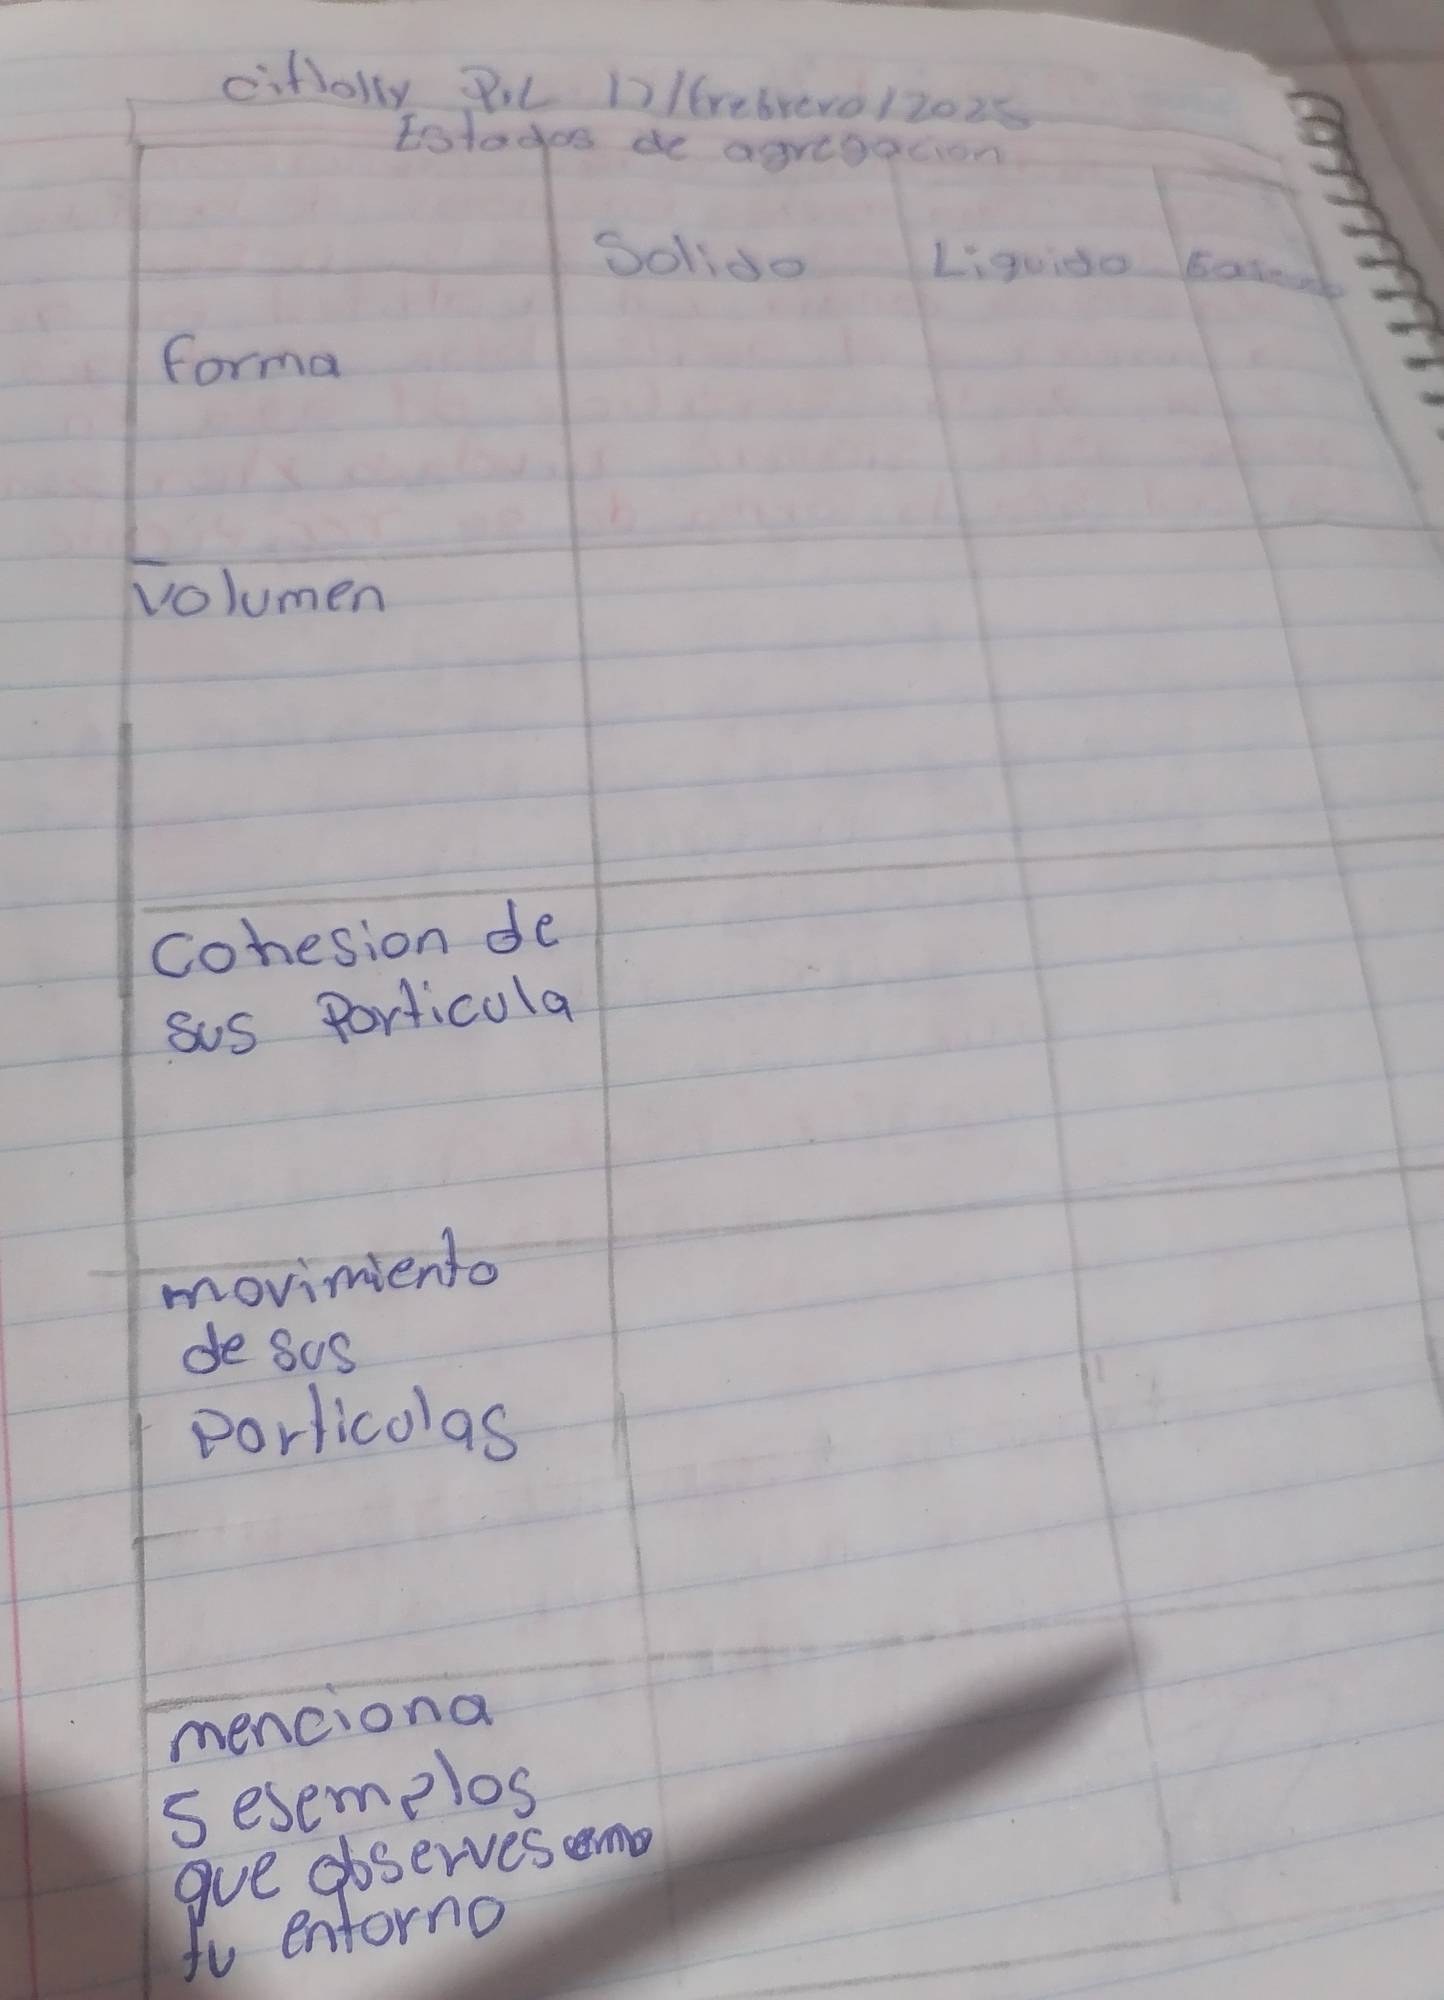 P.L 17/Frebrero/2025
Estados de agregacion
Solido Liquido
Forma
Volumen
Cohesion de
sus Particula
movimiento
de sus
Particulas
menciona
5 esemplos
que observes
tu entorno